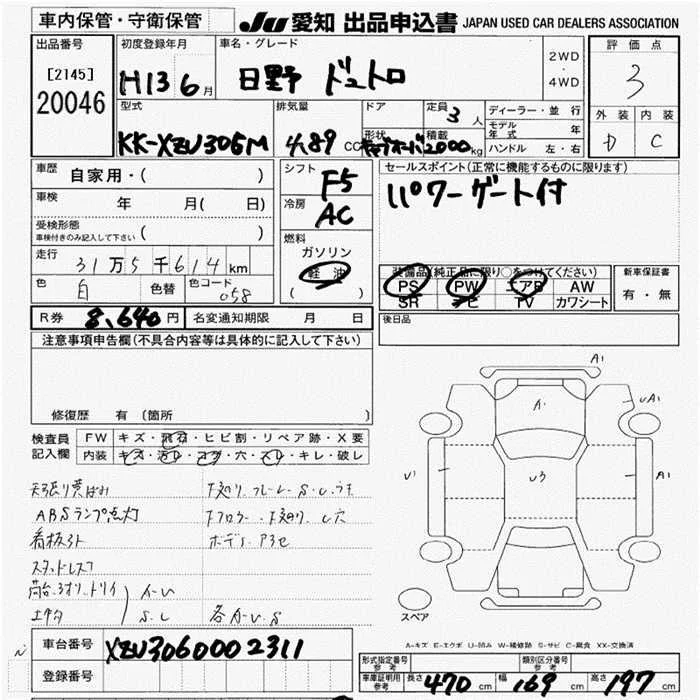 車内保管・守衛保管
JU 愛知 出品申込書 JAPAN USED CAR DEALERS ASSOCIATION
出品番号
[2145]
20046
初度登録年月
H13 6月
車名・グレード
日野 デュトロ
2WD
・
4WD
評価点
3
外装 内装
D C
型式
KK-XZU306M
排気量
4.89 CC
ドア
形状
定員 3人
積載
2000 kg
ディーラー・並行
モデル年式 年
ハンドル 左・右
車歴
自家用・( )
車検
年 月( 日)
受検形態
車検付きのみ記入して下さい ( )
走行
31万5千614km
色
白
色替
色コード
058
シフト
F5
冷房
AC
燃料
ガソリン
軽油
( )
セールスポイント(正常に機能するものに限ります)
パワーゲート付
装備品(純正品に限り○をつけてください)
PS PW エアB AW
SR ナビ TV カワシート
新車保証書
有・無
R券 8,640円 名変通知期限 月 日
後日品
注意事項申告欄(不具合内容等は具体的に記入して下さい)
修復歴 有 〔箇所 〕
検査員
記入欄
FW キズ・飛石・ヒビ割・リペア跡・X要
内装 キズ・汚レ・コゲ・穴・スレ・キレ・破レ
ABSランプ点灯
看板3ト
A1
A・
UA1
U1
U3
A1
スペア
A-キズ E-エクボ U-凹み W-補修跡 S-サビ C-腐食 XX-交換済
車台番号
XZU3060002311
登録番号
形式指定番号
参考
類別区分番号
参考
車庫証明用
参考
長さ 470 cm 幅 169 cm 高さ 197 cm